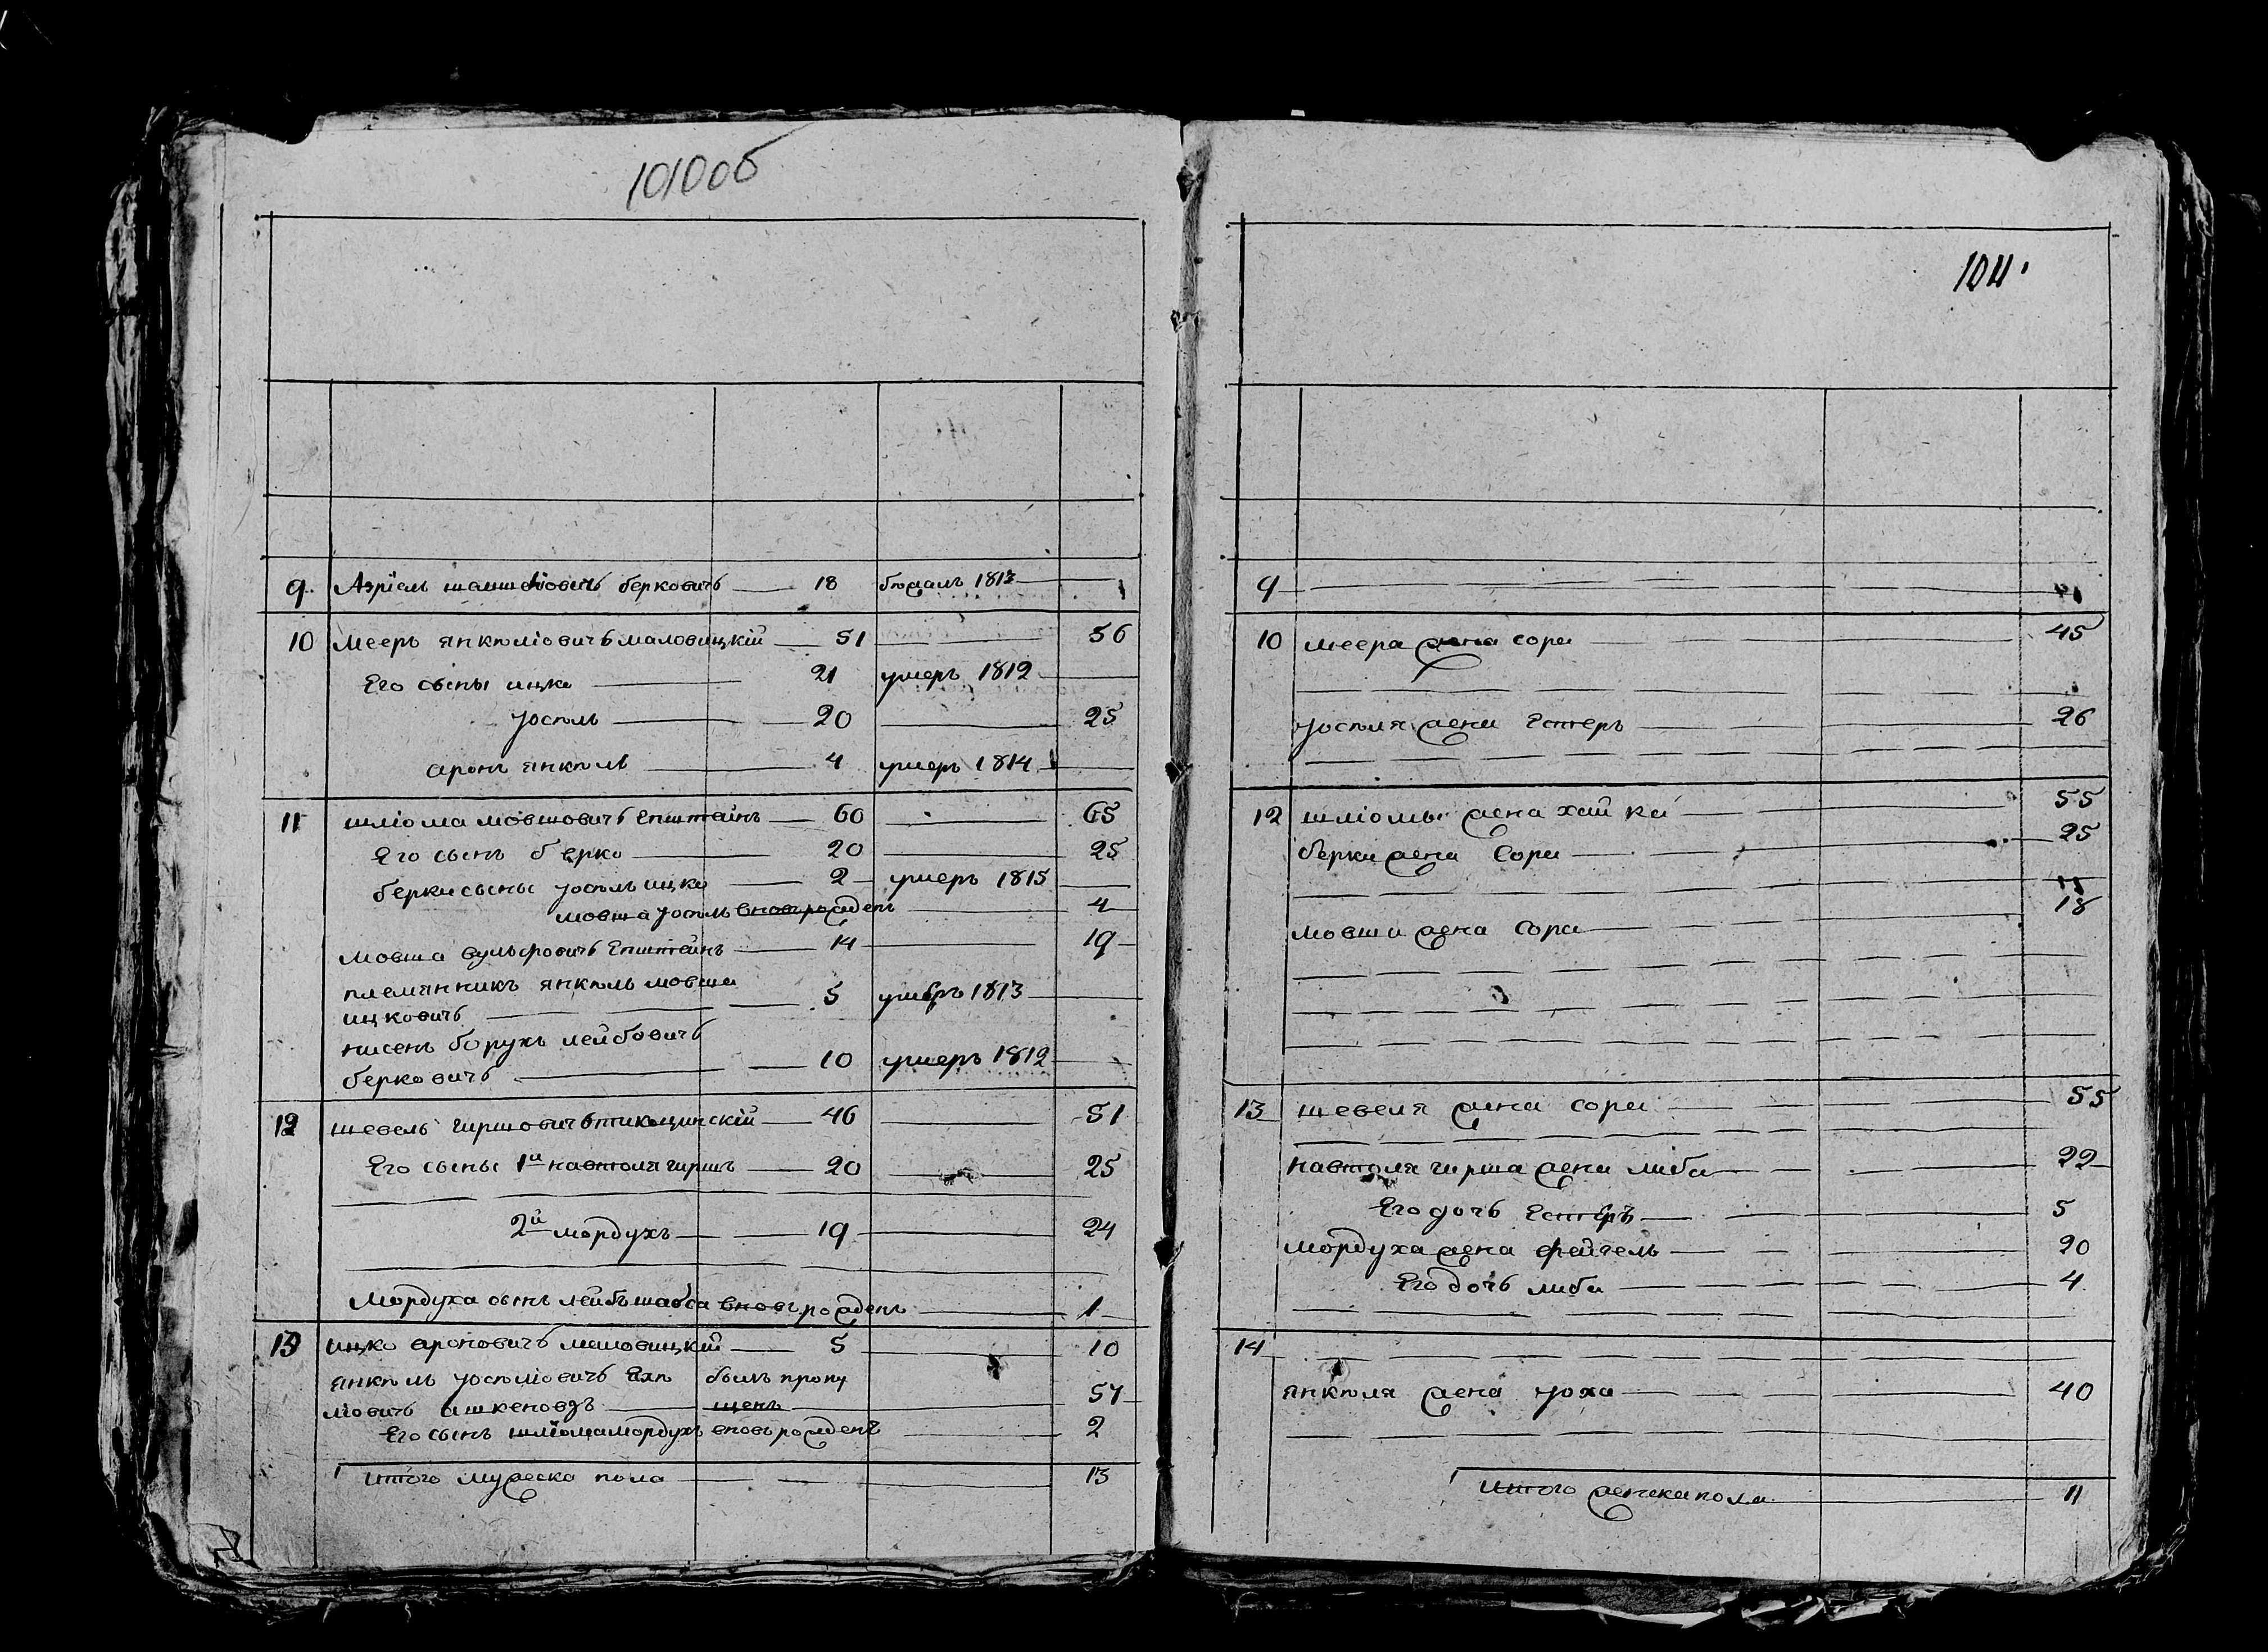 101об
9. Аэріель шаишеліовичъ берковичъ 18 бежалъ 1813
10 Мееръ янкеліовичъ маловицкій 51 56
Его сыны ицко 21 умеръ 1812
Іосель 20 25
аронъ янкель 4 умеръ 1814
11 шліома мовшовичъ Епштаинъ 60 65
Его сынъ берко 20 25
берки сыны Іосель ицко 2 умеръ 1815
мовша Іосель вновь рожденъ 4
мовша вульфовичъ Епштаинъ 14 19
племянникъ янкель мовша
ицковичъ 5 умеръ 1813
нисенъ борухъ лейбовичъ
берковичъ 10 умеръ 1812
12 шевель гиршовичъ тикоцинскій 46 51
Его сыны 1й навтоля гиршъ 20 25
2й мордухъ 19 24
Мордуха сынъ лейбъ шабса вновь рожденъ 1
13 ицко ароновичъ маловицкій 5 10
янкель Іоселіовичъ Ехе был пропу
ліовичъ ашкеновзъ щенъ 57
Его сынъ шліома мордухъ вновь рожденъ 2
Итого мужеска пола 13
104
9
10 меера жена сора 45
Іоселя жена Естеръ 26
12 шліомы жена хайка 55
берки жена Сора 25
18
мовши жена Сора
13 шевеля жена сора 55
навтоля гирша жена либа 22
Его дочь Естеръ 5
мордуха жена фейгель 20
Его дочь либа 4
14
янкеля жена Іоха 40
Итого женска пола 11